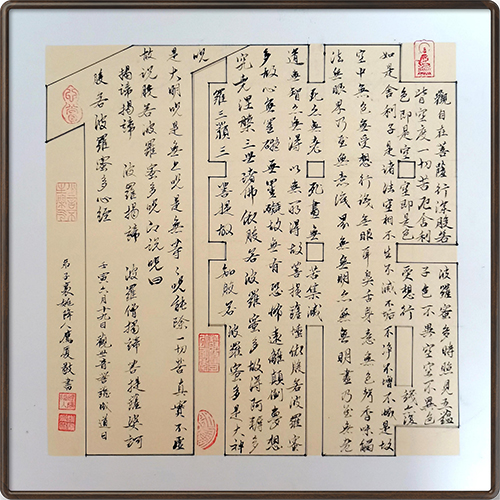 觀自在菩薩行深般若
波羅蜜多時照見五蘊
皆空度一切苦厄舍利
子色不異空空不異色
色即是空 空即是色
受想行
識亦復
如是舍利子是諸法空相不生不滅不垢不淨不增不減是故
空中無色無受想行識無眼耳鼻舌身意無色聲香味觸
法無眼界乃至無意識界無無明亦無無明盡乃至無老
死亦無老 死盡無 苦集滅
道無智亦無得以無所得故菩提薩埵依般若波羅蜜
多故心無罣礙無罣礙故無有恐怖遠離顛倒夢想
究竟涅槃三世諸佛依般若波羅蜜多故得阿耨多
羅三藐三 菩提故 知般若 波羅蜜多是大神
咒
是大明咒是無上咒是無等々咒能除一切苦真實不虛
故說般若波羅蜜多咒即說咒曰
揭諦揭諦 波羅揭諦 波羅僧揭諦 菩提薩婆訶
般若波羅蜜多心經 壬寅六月十九觀世音菩薩成道日
弟子 敬書